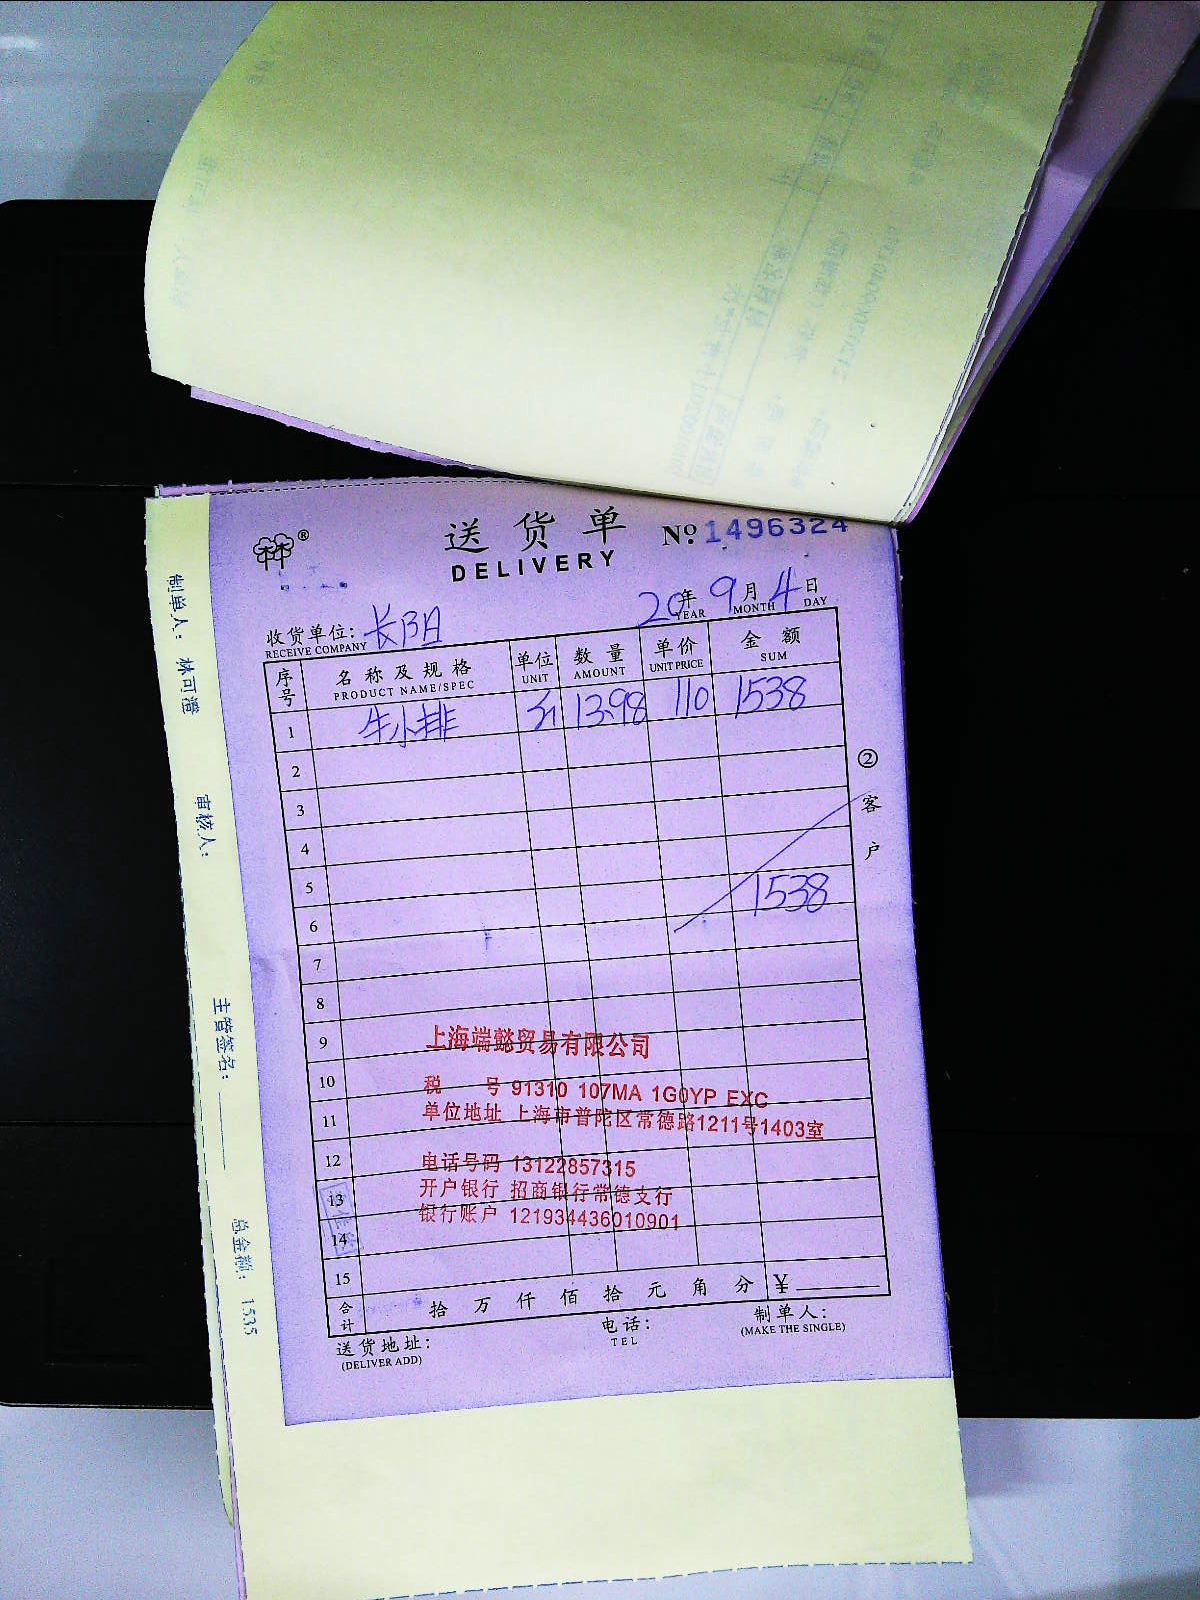 送货单 No. 1496324
DELIVERY
20年 9月 4日
YEAR MONTH DAY
收货单位: 长阳
RECEIVE COMPANY
序号 名称及规格 单位 数量 单价 金额
PRODUCT NAME/SPEC UNIT AMOUNT UNIT PRICE SUM
1 牛小排 13.98 110 1538
2
3
4
5
6 1538
7
8
9
10
11
12
13
14
15
上海端懿贸易有限公司
税 号 91310 107MA 1G0YP EXC
单位地址 上海市普陀区常德路1211号1403室
电话号码 13122857315
开户银行 招商银行常德支行
银行账户 121934436010901
合计 拾 万 仟 佰 拾 元 角 分 ¥
送货地址: 电话: 制单人:
(DELIVER ADD) TEL (MAKE THE SINGLE)
②客户
制单人: 林可澄 审核人: 主管签名: 总金额: 1535